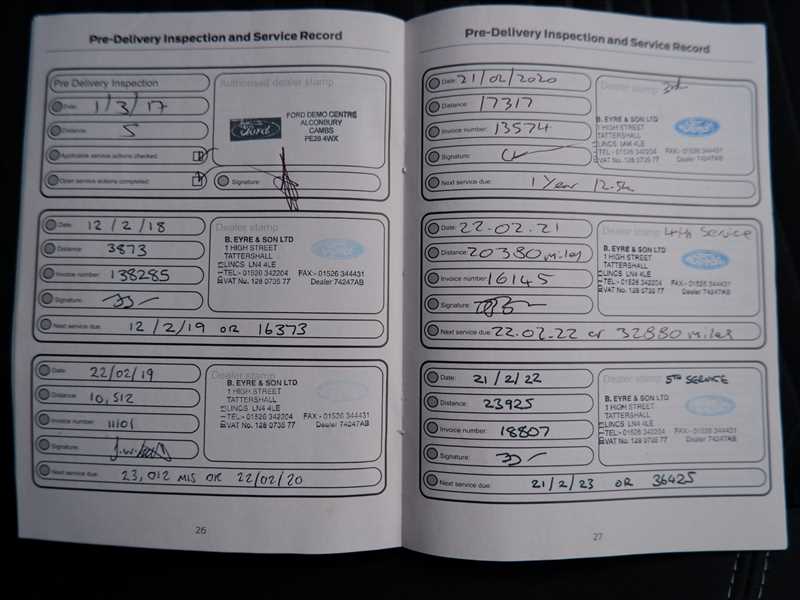 Pre-Delivery Inspection and Service Record
Pre Delivery Inspection
Date: 1/3/17
Distance: 5
Applicable service actions checked
Open service actions completed
Authorised dealer stamp
Ford
FORD DEMO CENTRE
ALCONBURY
CAMBS
PE28 4WX
Signature:
Date: 12/2/18
Distance: 3873
Invoice number: 138285
Signature:
Next service due: 12/2/19 OR 16373
Dealer stamp
B. EYRE & SON LTD
1 HIGH STREET
TATTERSHALL
LINCS LN4 4LE
TEL - 01526 342204 FAX - 01526 344431
VAT No. 128 0735 77 Dealer 74247AB
Date: 22/02/19
Distance: 10,512
Invoice number: 11101
Signature:
Next service due: 23,012 MIS OR 22/02/20
Dealer stamp
B. EYRE & SON LTD
1 HIGH STREET
TATTERSHALL
LINCS LN4 4LE
TEL - 01526 342204 FAX - 01526 344431
VAT No. 128 0735 77 Dealer 74247AB
26
Pre-Delivery Inspection and Service Record
Date: 21/02/2020
Distance: 17317
Invoice number: 13574
Signature:
Next service due: 1 Year 12.5k
Dealer stamp 3rd
B. EYRE & SON LTD
1 HIGH STREET
TATTERSHALL
LINCS LN4 4LE
TEL - 01526 342204 FAX - 01526 344431
VAT No. 128 0735 77 Dealer 74247AB
Ford
Date: 22.02.21
Distance: 20380 miles
Invoice number: 16145
Signature:
Next service due: 22.02.22 or 32880 miles
Dealer stamp 4th Service
B. EYRE & SON LTD
1 HIGH STREET
TATTERSHALL
LINCS LN4 4LE
TEL - 01526 342204 FAX - 01526 344431
VAT No. 128 0735 77 Dealer 74247AB
Ford
Date: 21/2/22
Distance: 23925
Invoice number: 18807
Signature:
Next service due: 21/2/23 OR 36425
Dealer stamp 5TH SERVICE
B. EYRE & SON LTD
1 HIGH STREET
TATTERSHALL
LINCS LN4 4LE
TEL - 01526 342204 FAX - 01526 344431
VAT No. 128 0735 77 Dealer 74247AB
27